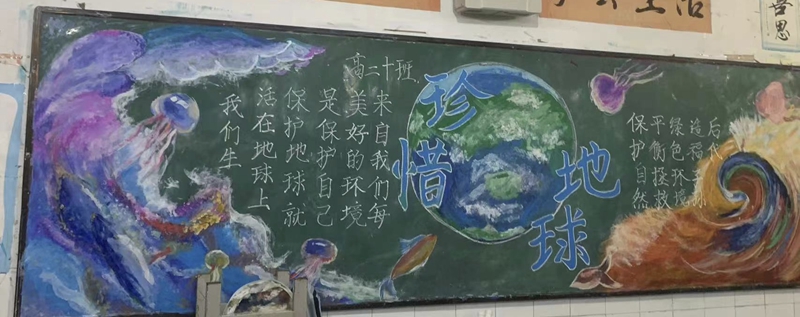 生活
思
高二十班
我们生
活在地球上
保护地球就
是保护自己
美好的环境
来自我们每
珍惜地球
保护自然
平衡拯救
绿色环境
造福子孙
后代